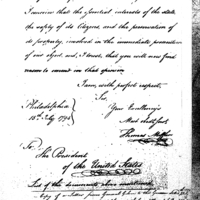 I conceive that the essential interests of the state,
the safety of its Citizens and the preservation of
its property, involved in the immediate promotion
of our object and, I trust, that you will now find
reason to consent on that opinion
I am, with perfect respect,
Sir,
Philadelphia
Your Excellency's
1794
Most Obedt
Thomas
To
The President
of the United States
List of the documents above mentioned
Copy of a Letter from General